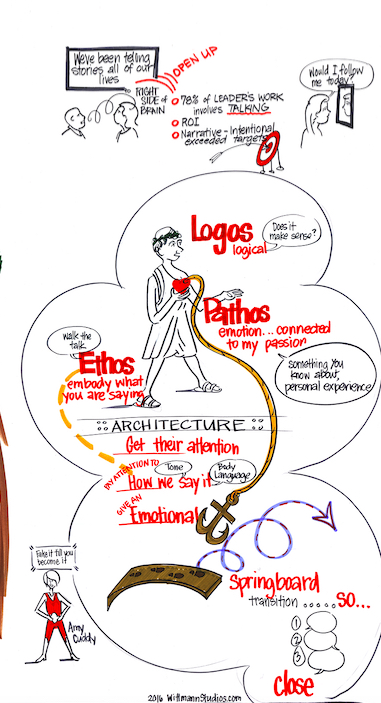 We've been telling
stories all of our
lives
RIGHT
SIDE of
BRAIN
OPEN UP
78% OF LEADER'S WORK
involves TALKING
ROI
Narrative - Intentional
exceeded targets
Would I follow
me today?
Logos
logical
Does it
make sense?
Pathos
emotion... connected
to my passion
something you
know about,
personal experience
Walk the
talk
Ethos
embody what
you are saying
:: ARCHITECTURE ::
Get their attention
MY ATTENTION TO
Tone
Body
Language
How we say it
GIVE AN
Emotional
Springboard
transition ..... so...
1
2
3
close
Fake it till you
become it
Amy
Cuddy
2016 WittmannStudios.com